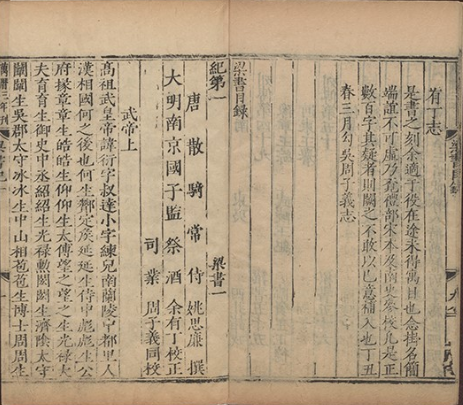 有丁志
是書之刻余適于役在途未得寓目也念掛名簡
端誼不可虛乃竟禮部宋本及南史參校凡是正
數百字其疑者則闕之不敢以己意補入也丁丑
春三月勾吳周子義志
梁書目錄
紀第一 梁書一
唐散騎常侍姚思廉撰
大明南京國子監祭酒余有丁校正
司業周子義同校
武帝上
高祖武皇帝諱衍字叔達小字練兒南蘭陵中都里人
漢相國何之後也何生酇定侯延延生侍中彪彪生公
府掾章章生皓皓生仰仰生太傅望之望之生光祿大
夫育育生御史中丞紹紹生光祿勳閎閎生濟陰太守
闡闡生吳郡太守冰冰生中山相苞苞生博士周周生
年刊 梁書紀一